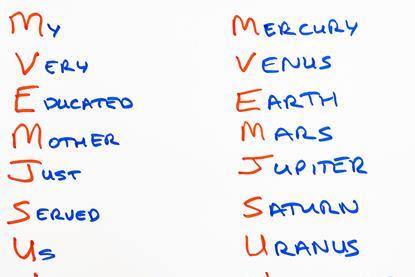 My Mercury
Very Venus
Educated Earth
Mother Mars
Just Jupiter
Served Saturn
Us Uranus